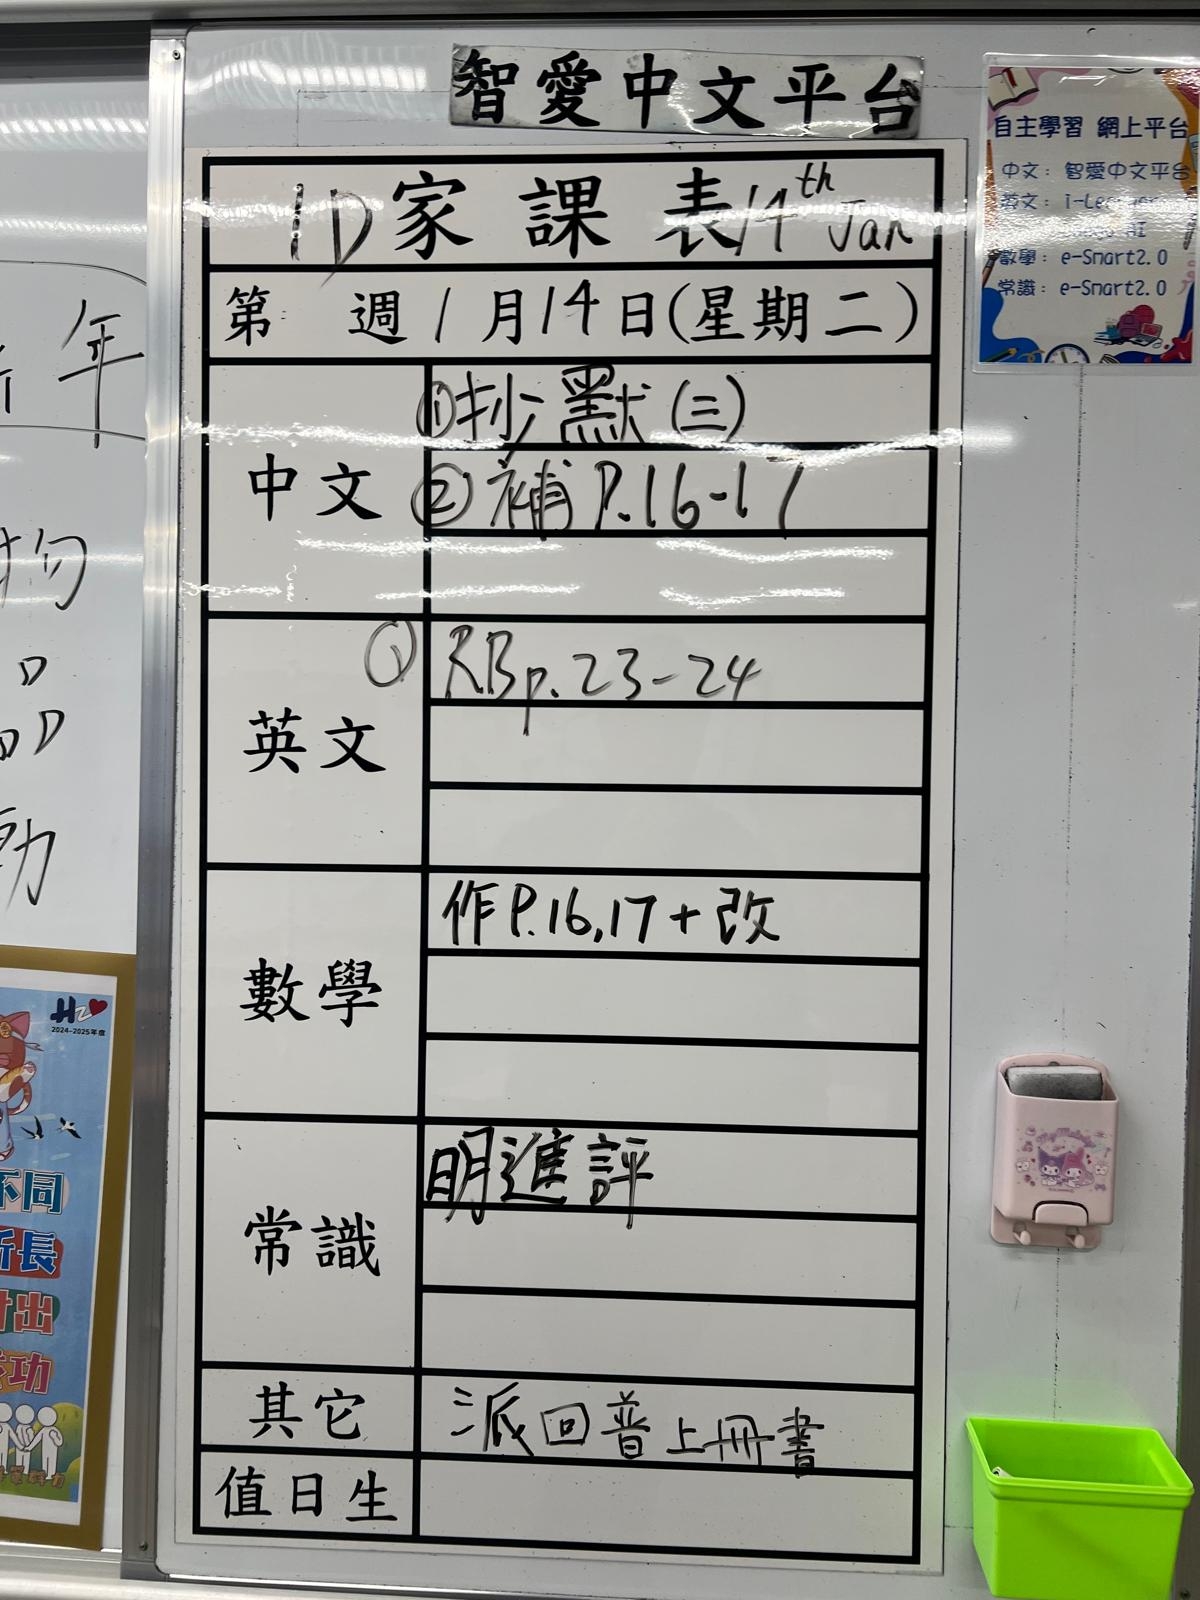 智愛中文平台
1D 家課表 14th Jan
第 週 1月14日(星期二)
中文
①抄默(三)
②補P.16-17
英文
① RB p.23-24
數學
作P.16,17+改
常識
明進評
其它
派回普上冊書
值日生
自主學習 網上平台
中文：智愛中文平台
英文：
數學：e-Smart2.0
常識：e-Smart2.0
年
物
品
動
2024-2025年度
不同
所長
付出
成功